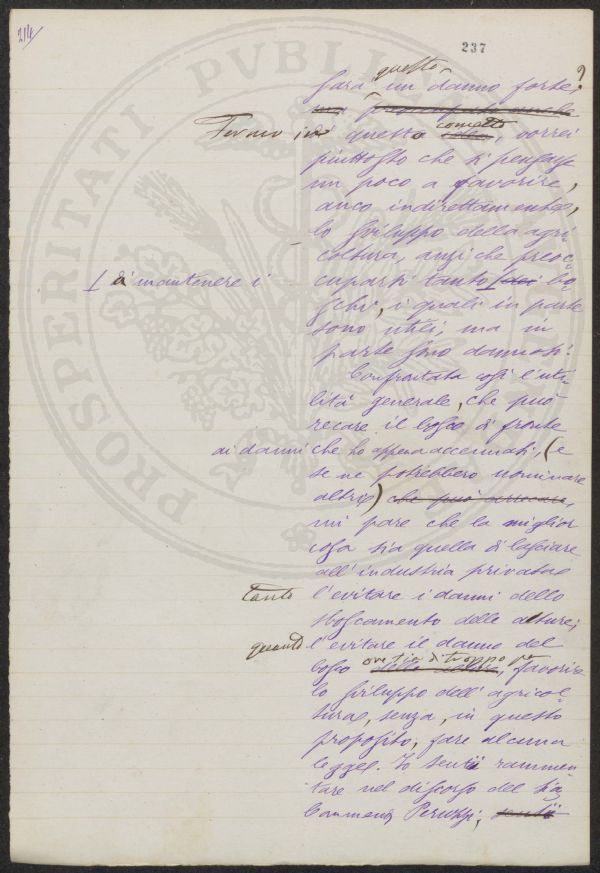 214
237
PROSPERITATI PVBLICAE
questo
Sarà un danno forte?
Fermo in questo concetto, vorrei
piuttosto che si pensasse
un poco a favorire,
anco indirettamente,
lo sviluppo della agri
coltura, anzi che preoc
cuparsi tanto di mantenere i bo
schi, i quali in parte
sono utili, ma in
parte sono dannosi.
Confrontata così l'uti-
lità generale, che può
recare il bosco di fronte
ai danni che ho appena accennati, (e
se ne potrebbero nominare
altri) che può arrecare,
mi pare che la miglior
cosa sia quella di lasciare
all'industria privata
tanto l'evitare i danni dello
sboscamento delle alture,
quanto l'evitare il danno del
bosco ove sia di troppo per favorire
lo sviluppo dell'agricol-
tura, senza, in questo
proposito, fare alcuna
legge. Io sentii rammen
tare nel discorso del Sig
Commend. Peruzzi, sentii